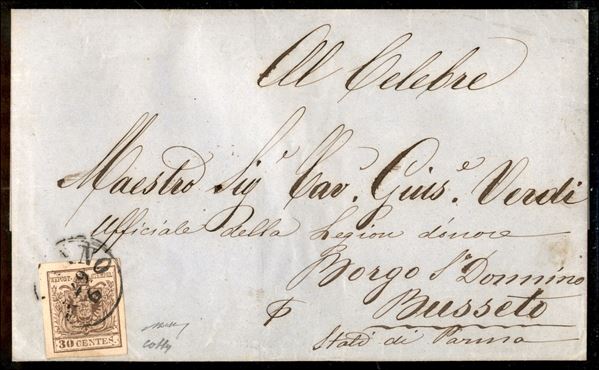 Al Celebre
Maestro Sigr Cavr. Guise. Verdi
Ufficiale della Legion d'onore
Borgo Sn Donnino
p Busseto
Stati di Parma
ANO
9
6
KREUZ
POST-STEMPEL
30 CENTES.